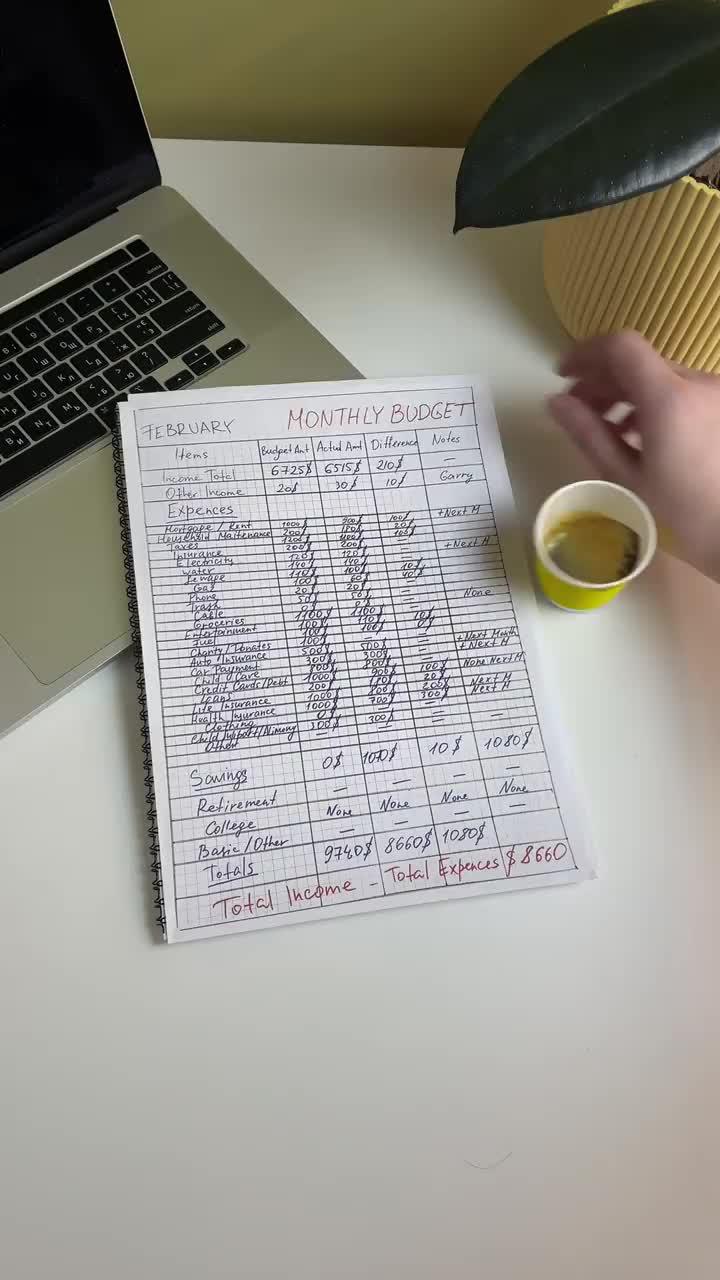 FEBRUARY MONTHLY BUDGET
Items Budget Amt Actual Amt Difference Notes
Income Total 6725$ 6515$ 210$ —
Other Income 20$ 30$ 10$ Garry
Expences
Mortgage / Rent 1000$ 900$ 100$ +Next M
Household Maitenance 200$ 180$ 20$
Taxes
Insurance 200$ 200$ —
Electricity 120$ 120$ — +Next M
Water 140$ 140$
Sewage 110$ 100$ 10$
Gas 100$ 60$ 40$
Phone 20$ 20$ —
Trash 50$ 50$ —
Cable 0$ 0$ — None
Groceries 1100$ 1100$ —
Entertainment 100$ 110$ 10$
Fuel 100$ 100$ 0$
Charity / Donates 100$ — —
Auto / Insurance 500$ 500$ — +Next Month
Car Payment 300$ 300$ — +Next M
Child Care 800$ 800$ —
Credit Cards / Debt 1000$ 900$ 100$ None Next M
Loans 200$ 180$ 20$
Life Insurance 1000$ 800$ 200$ Next M
Health Insurance 1000$ 700$ 300$ Next M
Clothing 0$ — —
Child Support / 300$ 300$ —
Other — — —
Savings 0$ 10$ 1080$
Retirement — — — —
College None None None None
Basic / Other — — — —
Totals 9740$ 8660$ 1080$
Total Income – Total Expences $ 8660
delete
return
shift